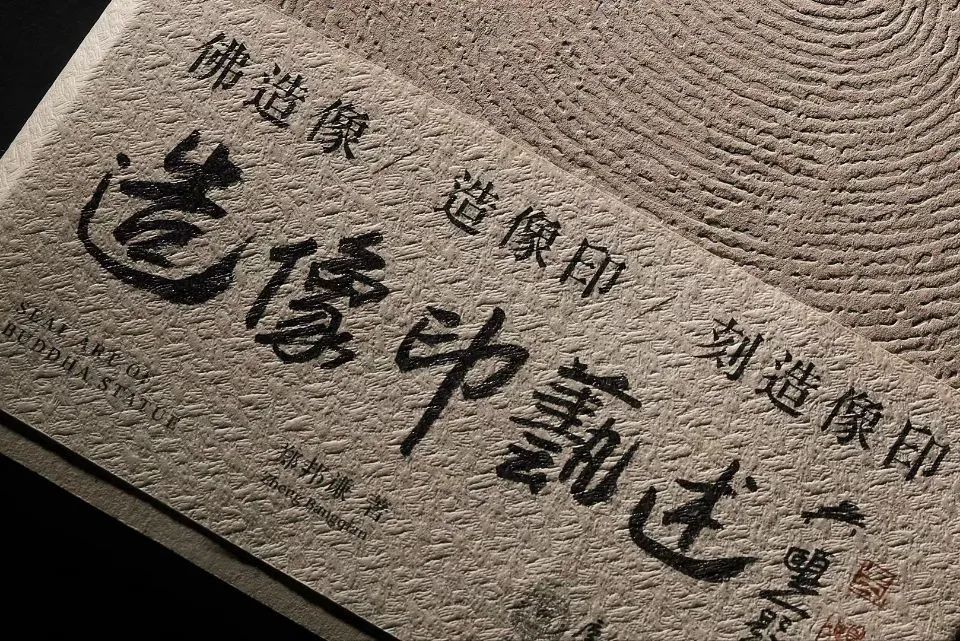 佛造像/造像印/刻造像印
造像印藝述
SEAL ART OF
BUDDHA STATUE
郑邦谦 著
Zheng Bangqian